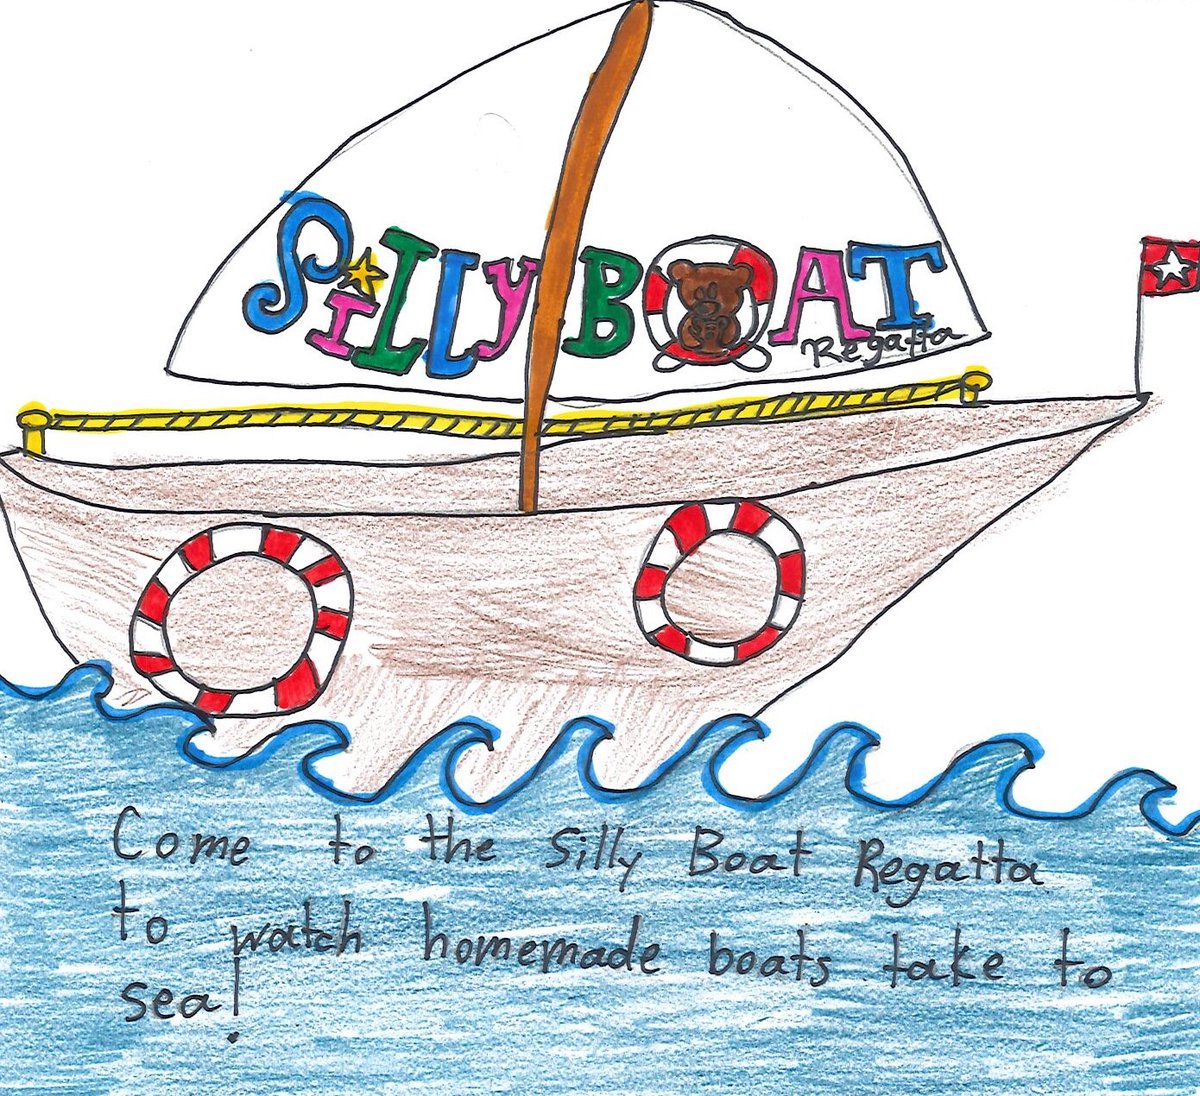 SiLLY BOAT
Regatta
Come to the Silly Boat Regatta
to watch homemade boats take to
sea!